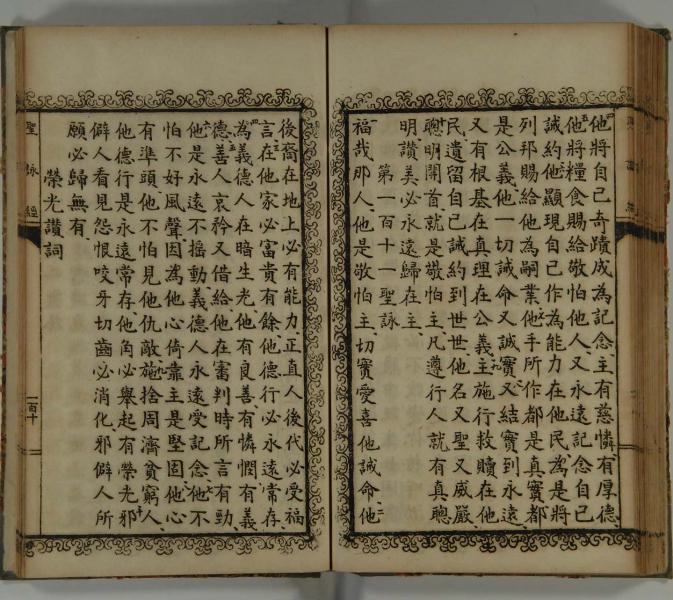 他將自己奇蹟成為記念、主有慈憐有厚德、
他將糧食賜給敬怕他人、又永遠記念自己
誡約、他顯現自己作為能力在他民、為是將
列邦賜給他為嗣業、他手所作都是真實都
是公義、他一切誡命又誠實、又結實到永遠、
又有根基在真理在公義、主施行救贖在他
民、遺留自己誡約到世世、他名又聖又威嚴、
聰明開首就是敬怕主、凡遵行人就有真聰
明讚美必永遠歸在主、
第一百十一聖詠
福哉那人、他是敬怕主、切實愛喜他誡命、他
後裔在地上必有能力、正直人後代必受福、
言在他家必富貴有餘、他德行必永遠常存、
為義德人在暗生光、他有良善有憐憫有義
德、善人哀矜又借給、他在審判時所言有勁、
他是永遠不搖動、義德人永遠受記念、他不
怕不好風聲、因為他心倚靠主是堅固、他心
有準頭、他不怕見他仇敵、施捨周濟貧窮人、
他德行是永遠常存、他角必舉起有榮光、邪
僻人看見怨恨咬牙切齒必消化、邪僻人所
願必歸無有、
榮光讚詞
聖詠經
一百十